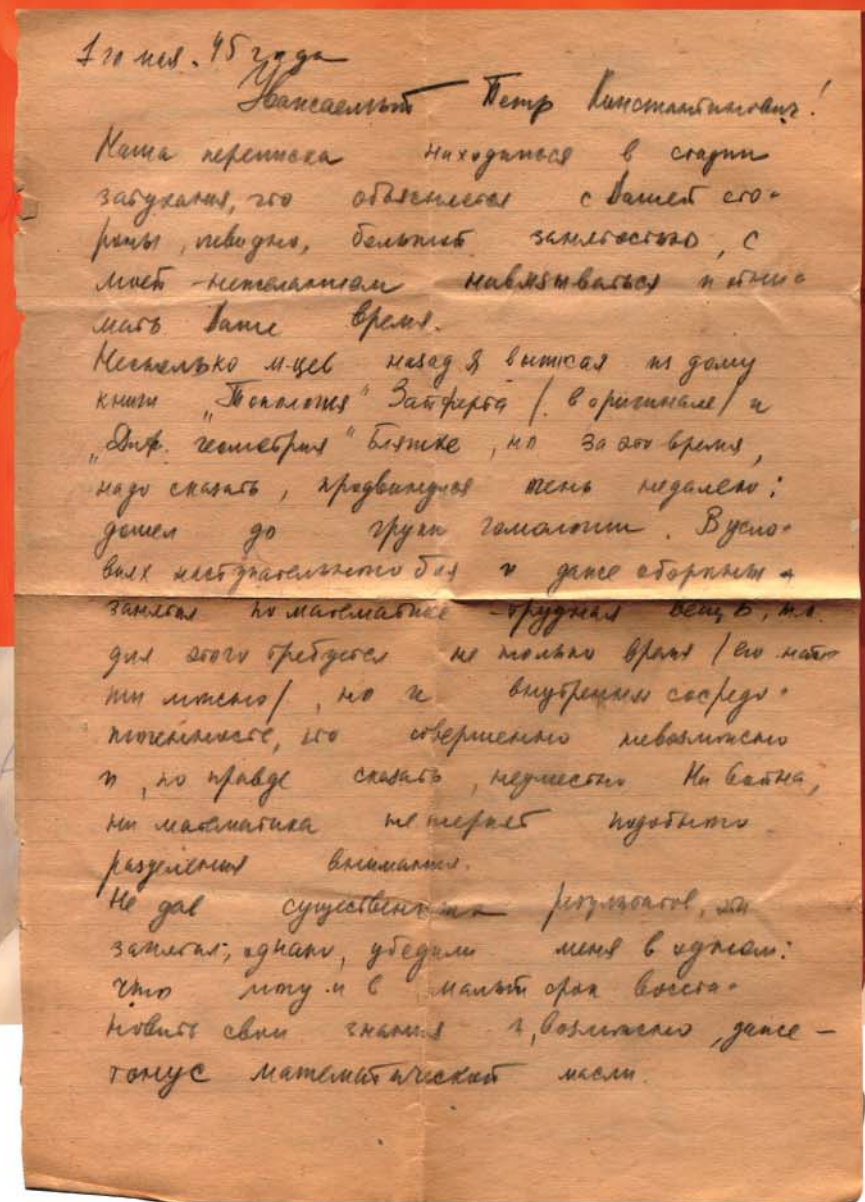 1го мая. 45 года
Уважаемый Петр Константинович!
Наша переписка находится в стадии
затухания, что объясняется с Вашей сто-
роны, очевидно, большой занятостью, с
моей - нежеланием навязываться и отни-
мать Ваше время.
Несколько м-цев назад я выписал из дому
книги "Топология" Зайферта /в оригинале/ и
"Диф. геометрия" Бляшке, но за это время,
надо сказать, продвинулся очень недалеко:
дошел до групп гомологии. В усло-
виях наступательного боя и даже обороны -
занятия по математике - трудная вещь, т.к.
для этого требуется не только время /его най-
ти можно/, но и внутренняя сосредо-
точенность, что совершенно невозможно
и, по правде сказать, неуместно. Ни война,
ни математика не терпят подобного
разделения внимания.
Не дав существенных результатов, эти
занятия, однако, убедили меня в одном:
что могу и в малый срок восста-
новить свои знания и, возможно, даже -
тонус математической мысли.